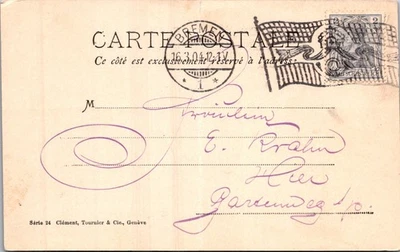 CARTE POSTALE
Ce côté est exclusivement réservé à l'adresse.
BREMEN
16.3.04.12-1V.
* 1 *
2
M Fräulein
E. Krahn
Hier
Gartenweg
Série 24 Clément, Tournier & Cie., Genève